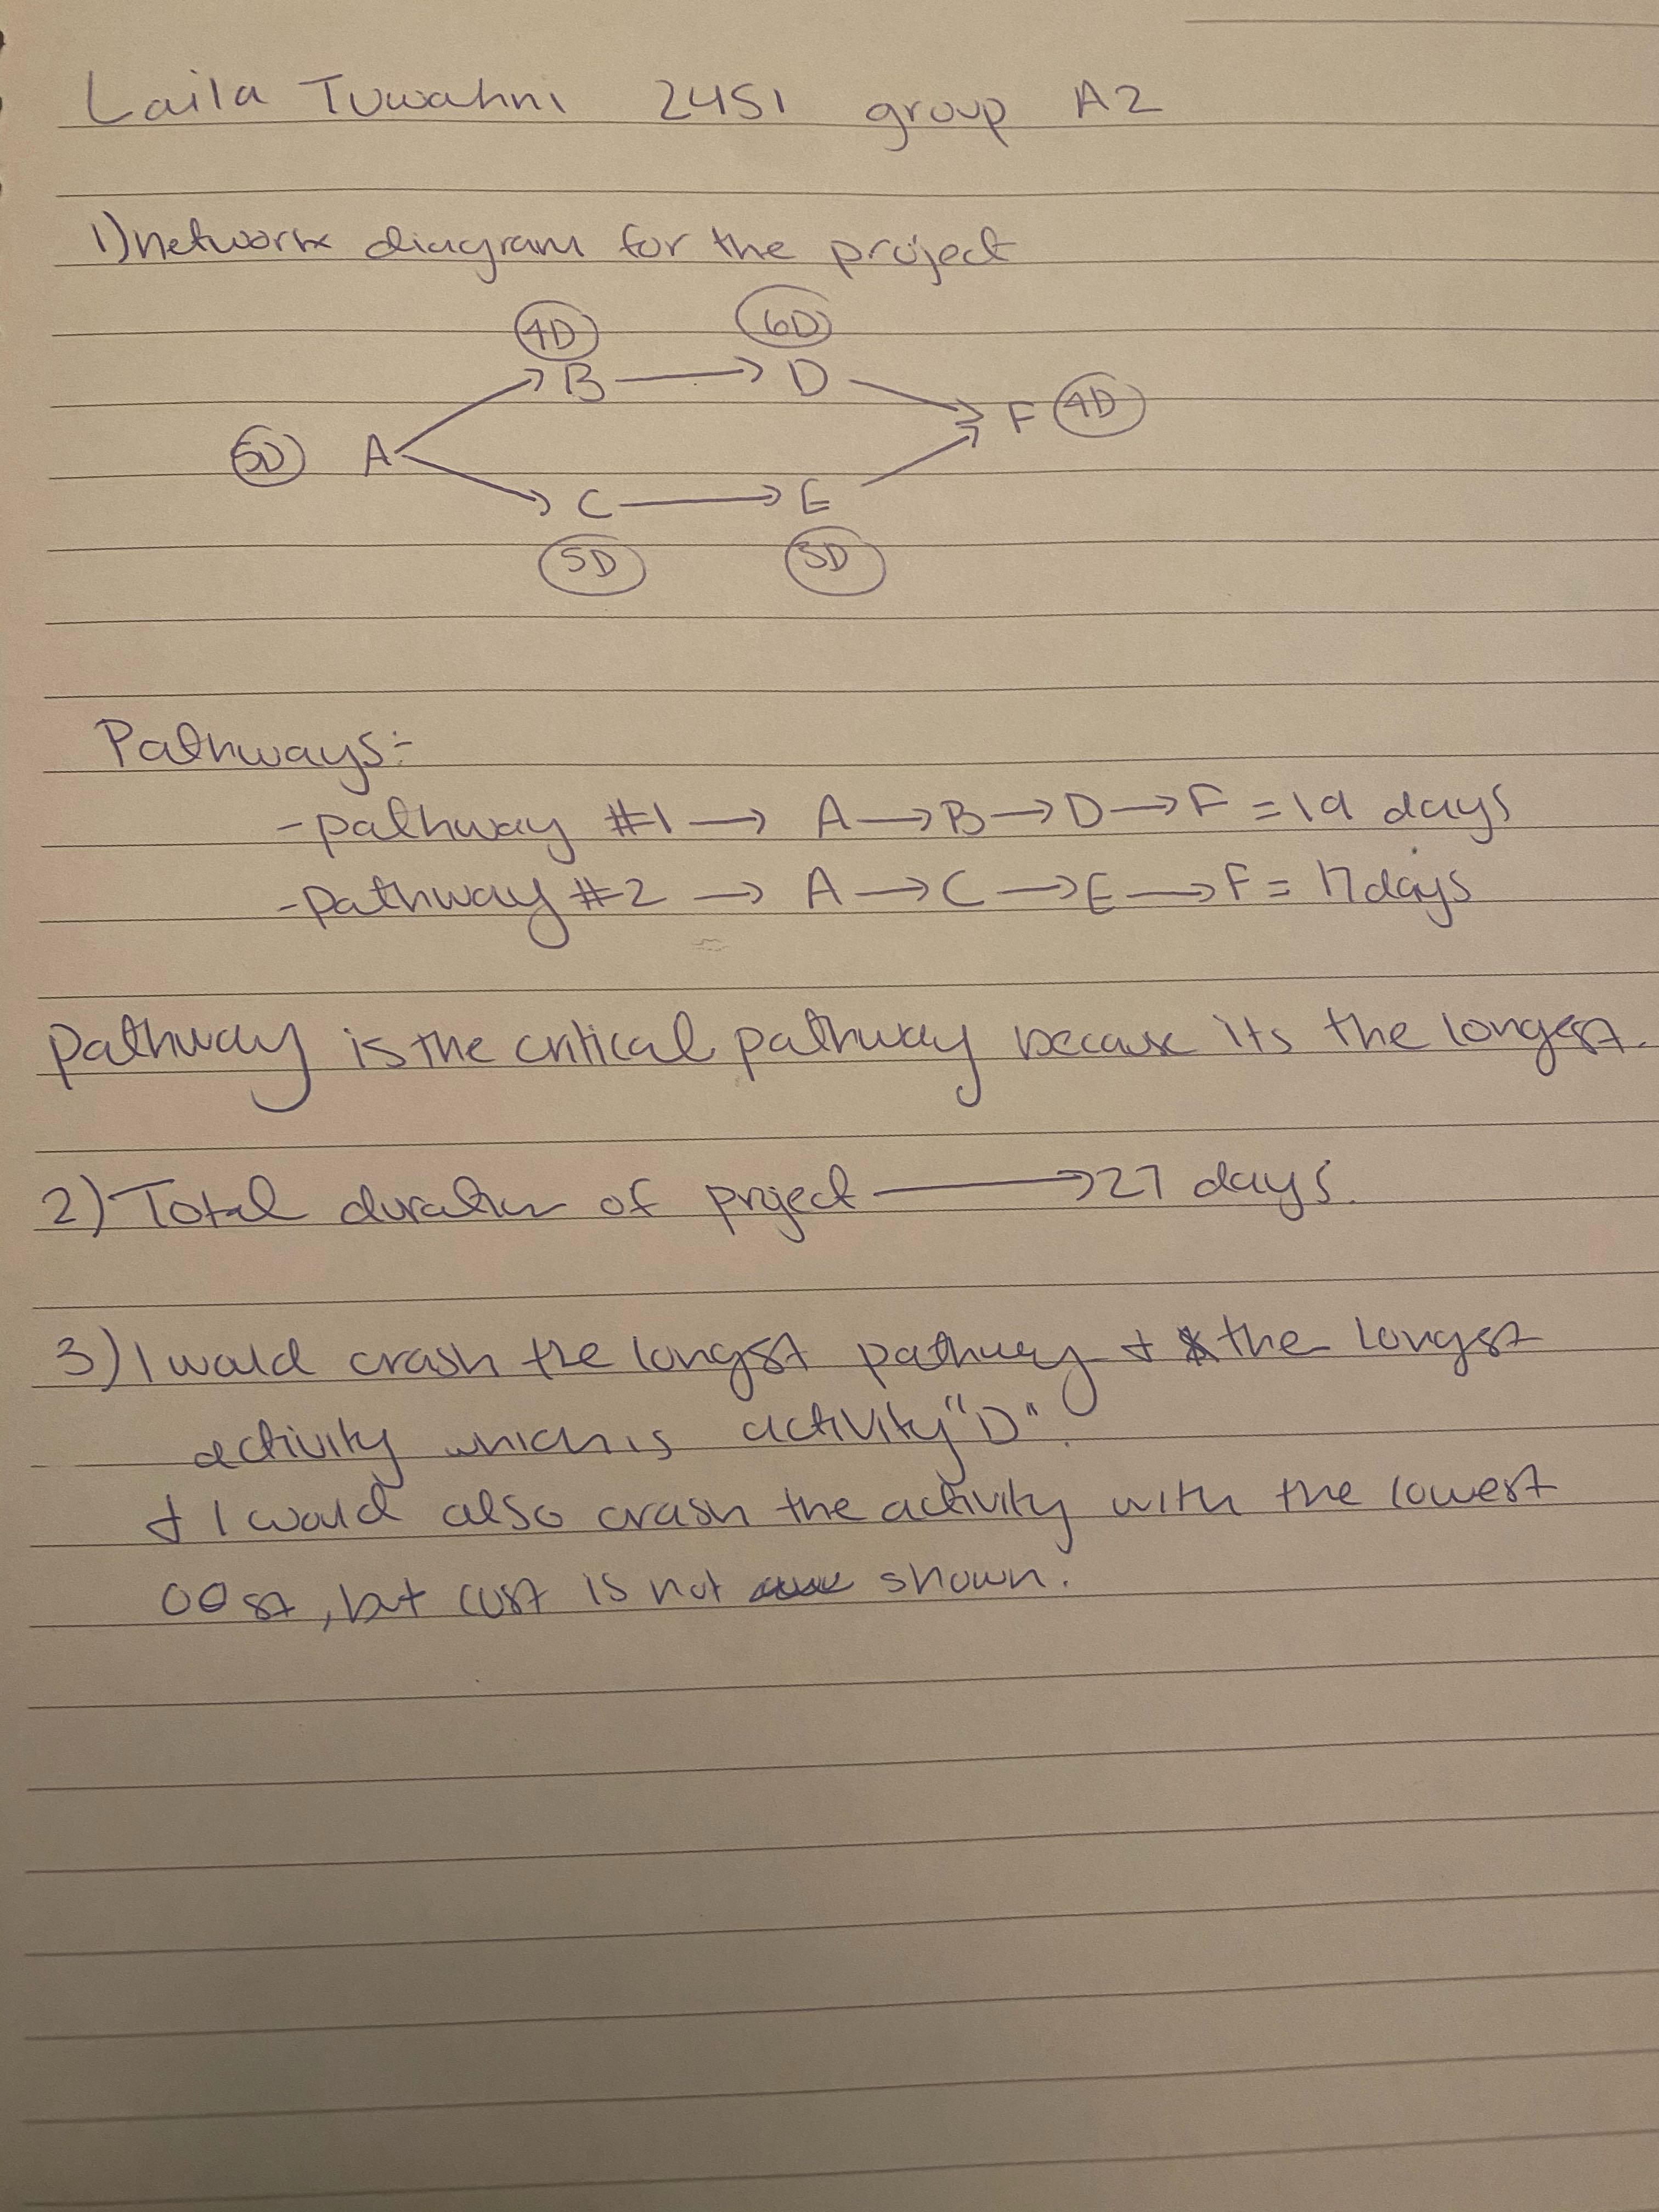 Laila Tuwahni 2451 group A2
1) network diagram for the project
4D 6D
B → D
5D A F 4D
C → E
5D 3D
Pathways:-
- pathway #1 → A → B → D → F = 19 days
- pathway #2 → A → C → E → F = 17 days
pathway is the critical pathway because its the longest.
2) Total duration of project → 27 days.
3) I would crash the longest pathway + the longest
activity which is activity "D".
+ I would also crash the activity with the lowest
cost, but cost is not shown.